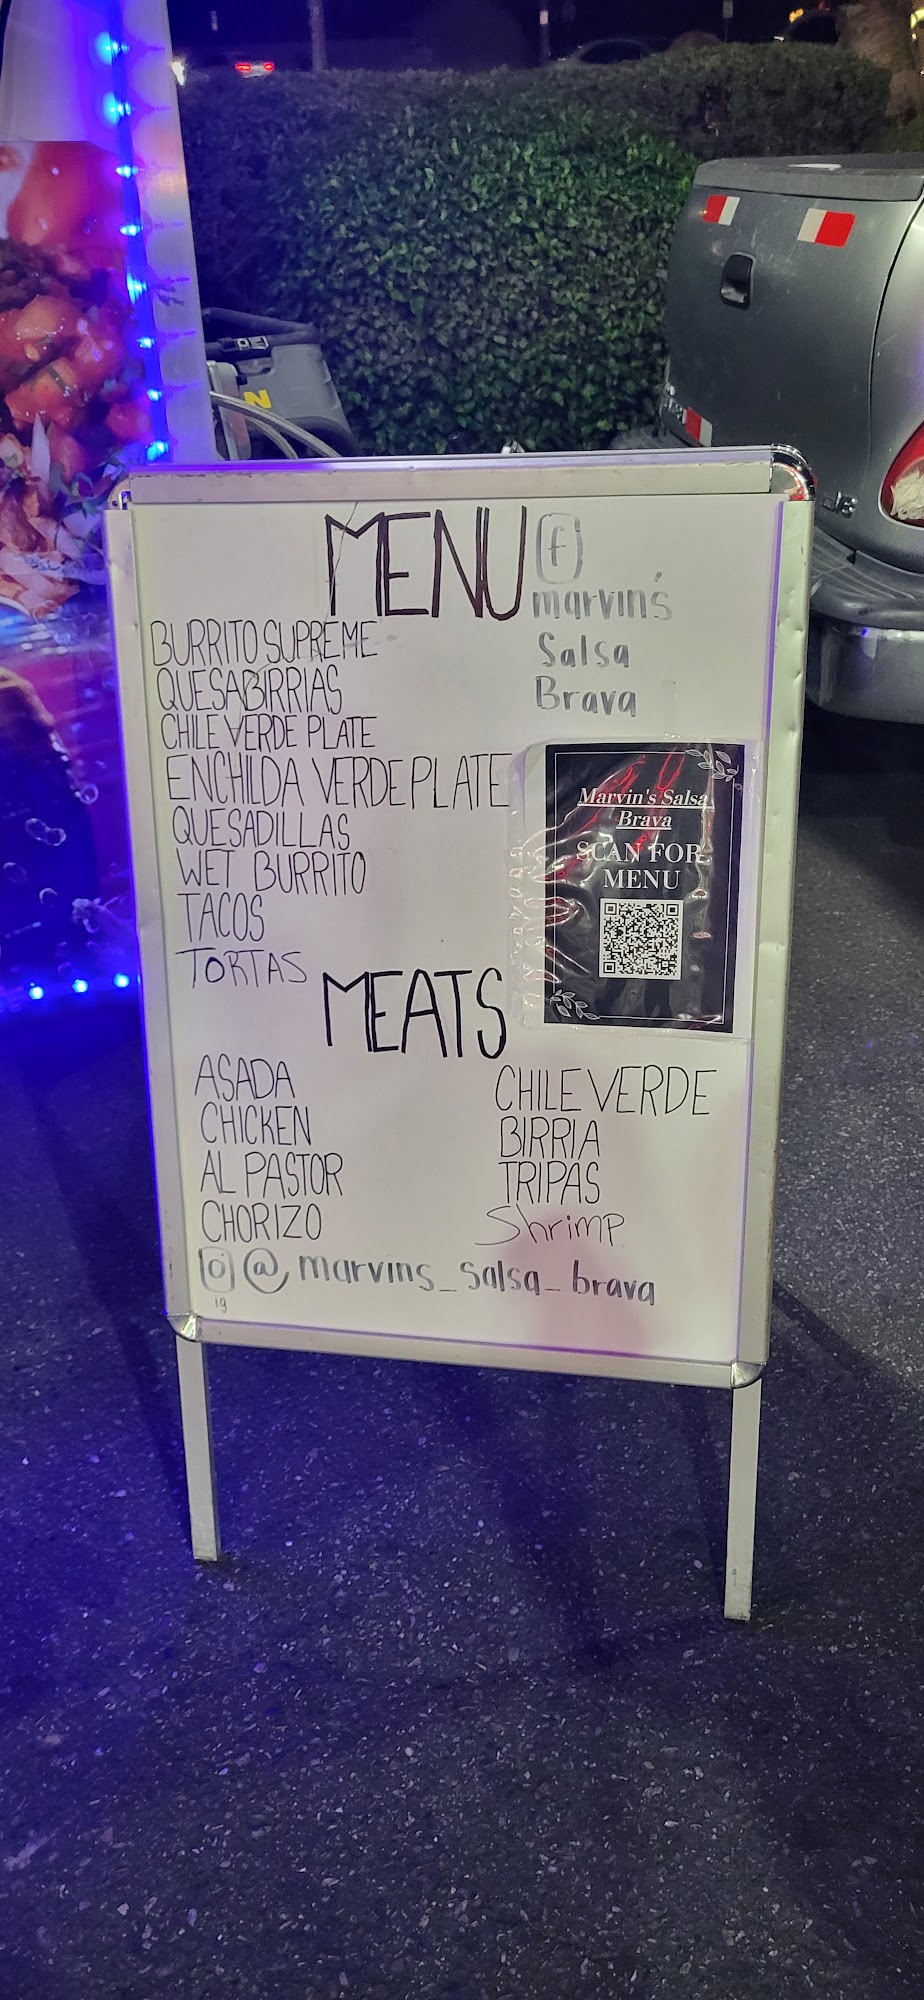 MENU
f
marvin's
Salsa
Brava
BURRITO SUPREME
QUESABIRRIAS
CHILE VERDE PLATE
ENCHILDA VERDE PLATE
QUESADILLAS
WET BURRITO
TACOS
TORTAS
Marvin's Salsa
Brava
SCAN FOR
MENU
MEATS
ASADA
CHICKEN
AL PASTOR
CHORIZO
CHILE VERDE
BIRRIA
TRIPAS
Shrimp
@marvins_salsa_brava
ig